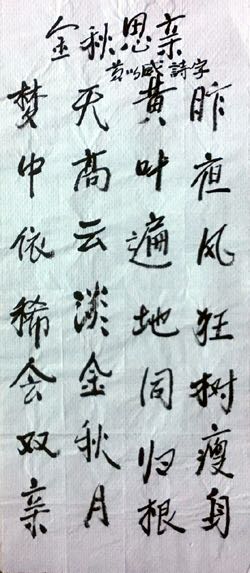 金秋思亲
黄以咸詩字
昨夜风狂树瘦身
黄叶遍地同归根
天高云淡金秋月
梦中依稀会双亲